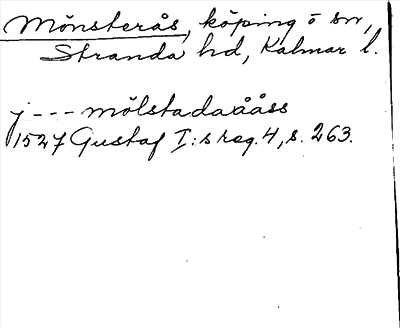 Mönsterås, köping o sn,
Stranda hd, Kalmar l.
j --- mölstadaååss
1527 Gustaf I:s reg. 4, s. 263.